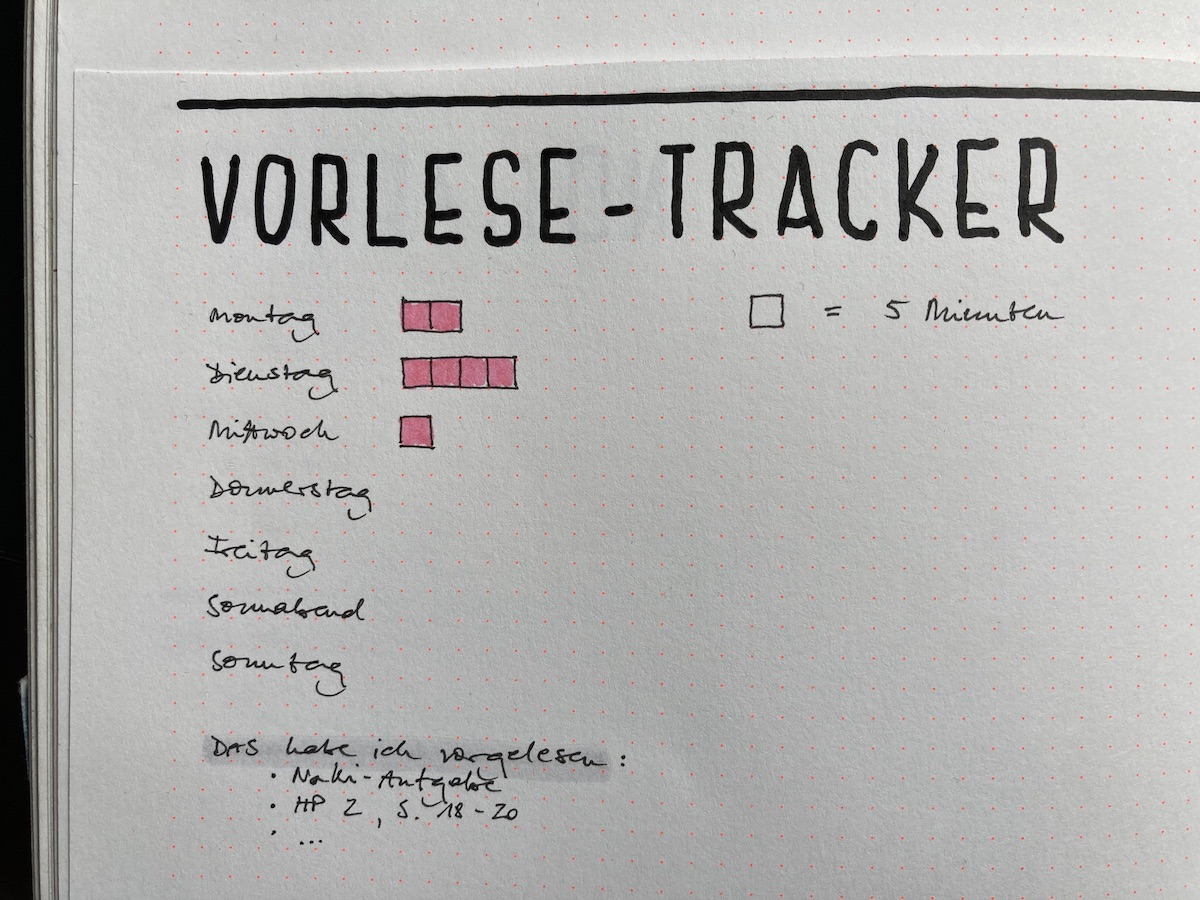 VORLESE-TRACKER
Montag
= 5 Minuten
Dienstag
Mittwoch
Donnerstag
Freitag
Sonnabend
Sonntag
DAS habe ich vorgelesen:
• NaKi-Aufgabe
• HP 2, S. 18-20
• ...